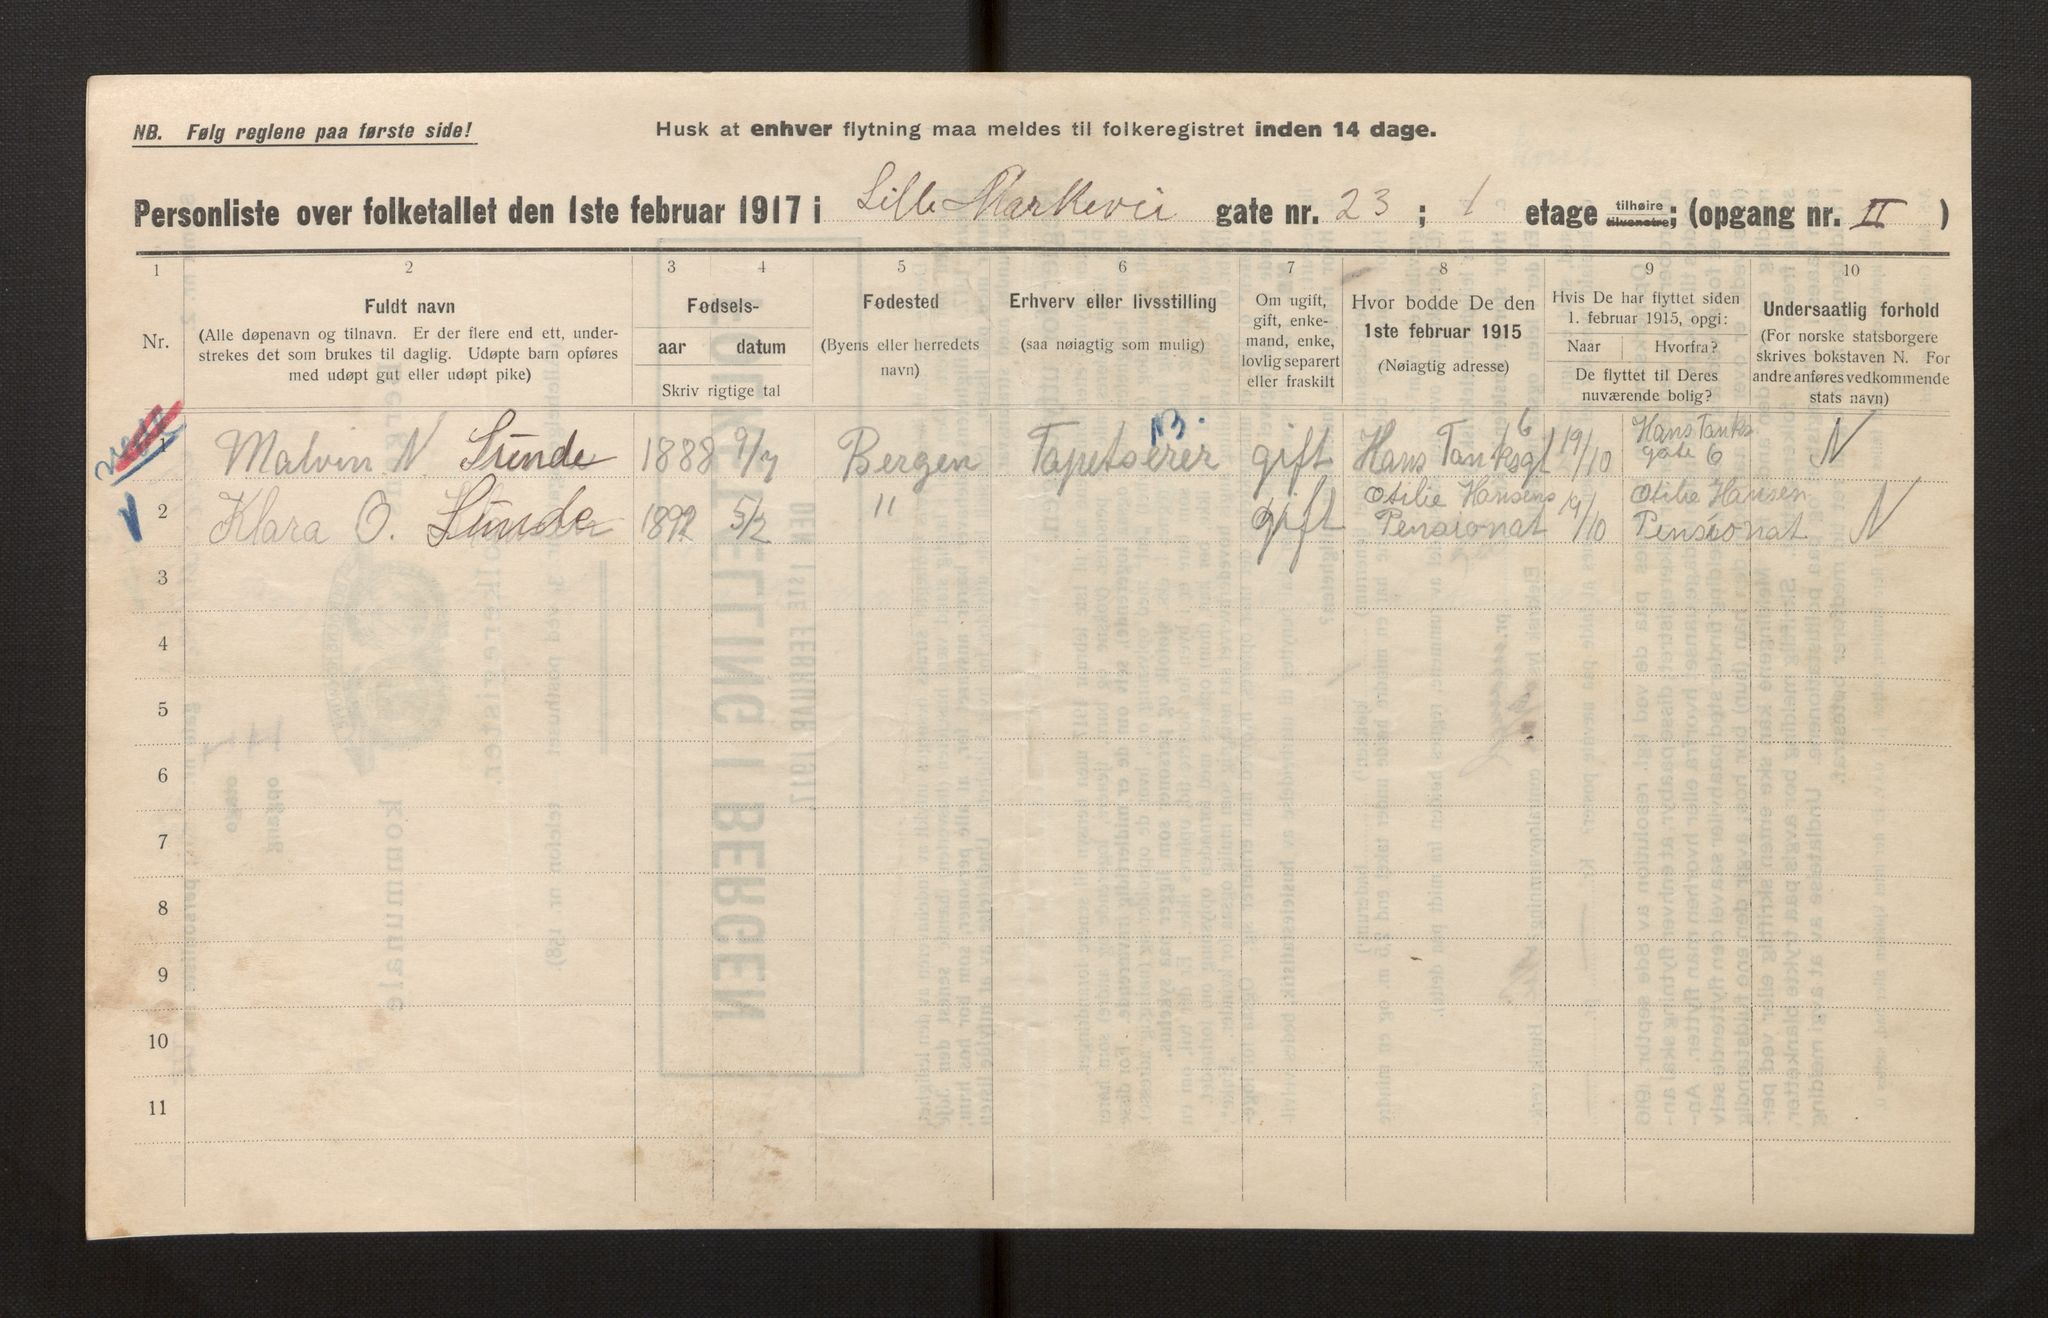 NB. Følg reglene paa første side!
Husk at enhver flytning maa meldes til folkeregistret inden 14 dage.
Personliste over folketallet den 1ste februar 1917 i Lille Markevei gate nr. 23 ; 1 etage tilhøire tilvenstre; (opgang nr. II )
1 2 3 4 5 6 7 8 9 10
Nr.
Fuldt navn
(Alle døpenavn og tilnavn. Er der flere end ett, under-
strekes det som brukes til daglig. Udøpte barn opføres
med udøpt gut eller udøpt pike)
Fødsels-
aar datum
Skriv rigtige tal
Fødested
(Byens eller herredets
navn)
Erhverv eller livsstilling
(saa nøiagtig som mulig)
Om ugift,
gift, enke-
mand, enke,
lovlig separert
eller fraskilt
Hvor bodde De den
1ste februar 1915
(Nøiagtig adresse)
Hvis De har flyttet siden
1. februar 1915, opgi:
Naar Hvorfra?
De flyttet til Deres
nuværende bolig?
Undersaatlig forhold
(For norske statsborgere
skrives bokstaven N. For
andre anføres vedkommende
stats navn)
1 Malvin N Sunde 1888 9/7 Bergen Tapetserer gift Hans Tanksgt 6 19/10 Hans Tanks gate 6 N
2 Klara O. Sunde 1892 5/2 " gift Otilie Hansens Pensionat 19/10 Otilie Hansen Pensionat N
3
4
5
6
7
8
9
10
11